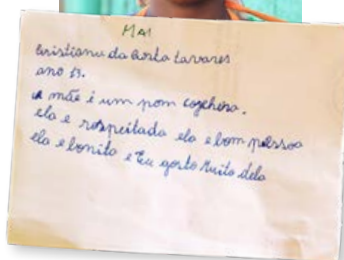 MAI
Cristiana da Costa Tavares
ano 13.
a mãe é um pom cozehera.
ela e rospeitada ela e bom pessoa
ela e bonita e Eu gosto muito dela